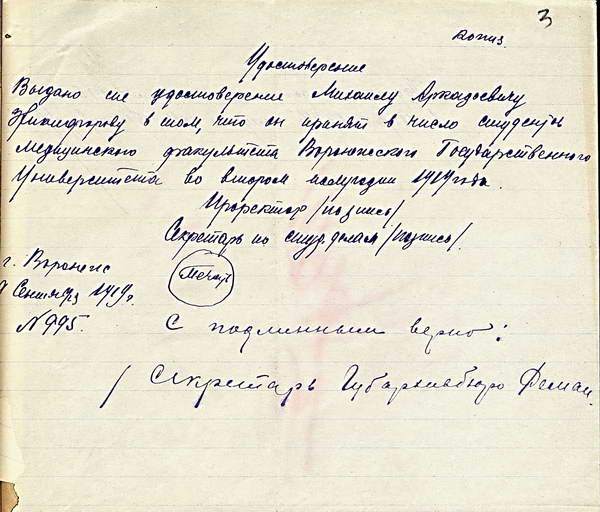 3
копия.
Удостоверение
Выдано сие удостоверение Михаилу Аркадьевичу
в том, что он принят в число студенты
медицинского факультета Воронежского Государственного
Университета во втором полугодии 1919 года.
Проректор /подпись/
Секретарь по студ. делам /подпись/.
г. Воронеж
Сентября 1919г.
Печать
№995.
С подлинным верно:
Секретарь Губархивбюро